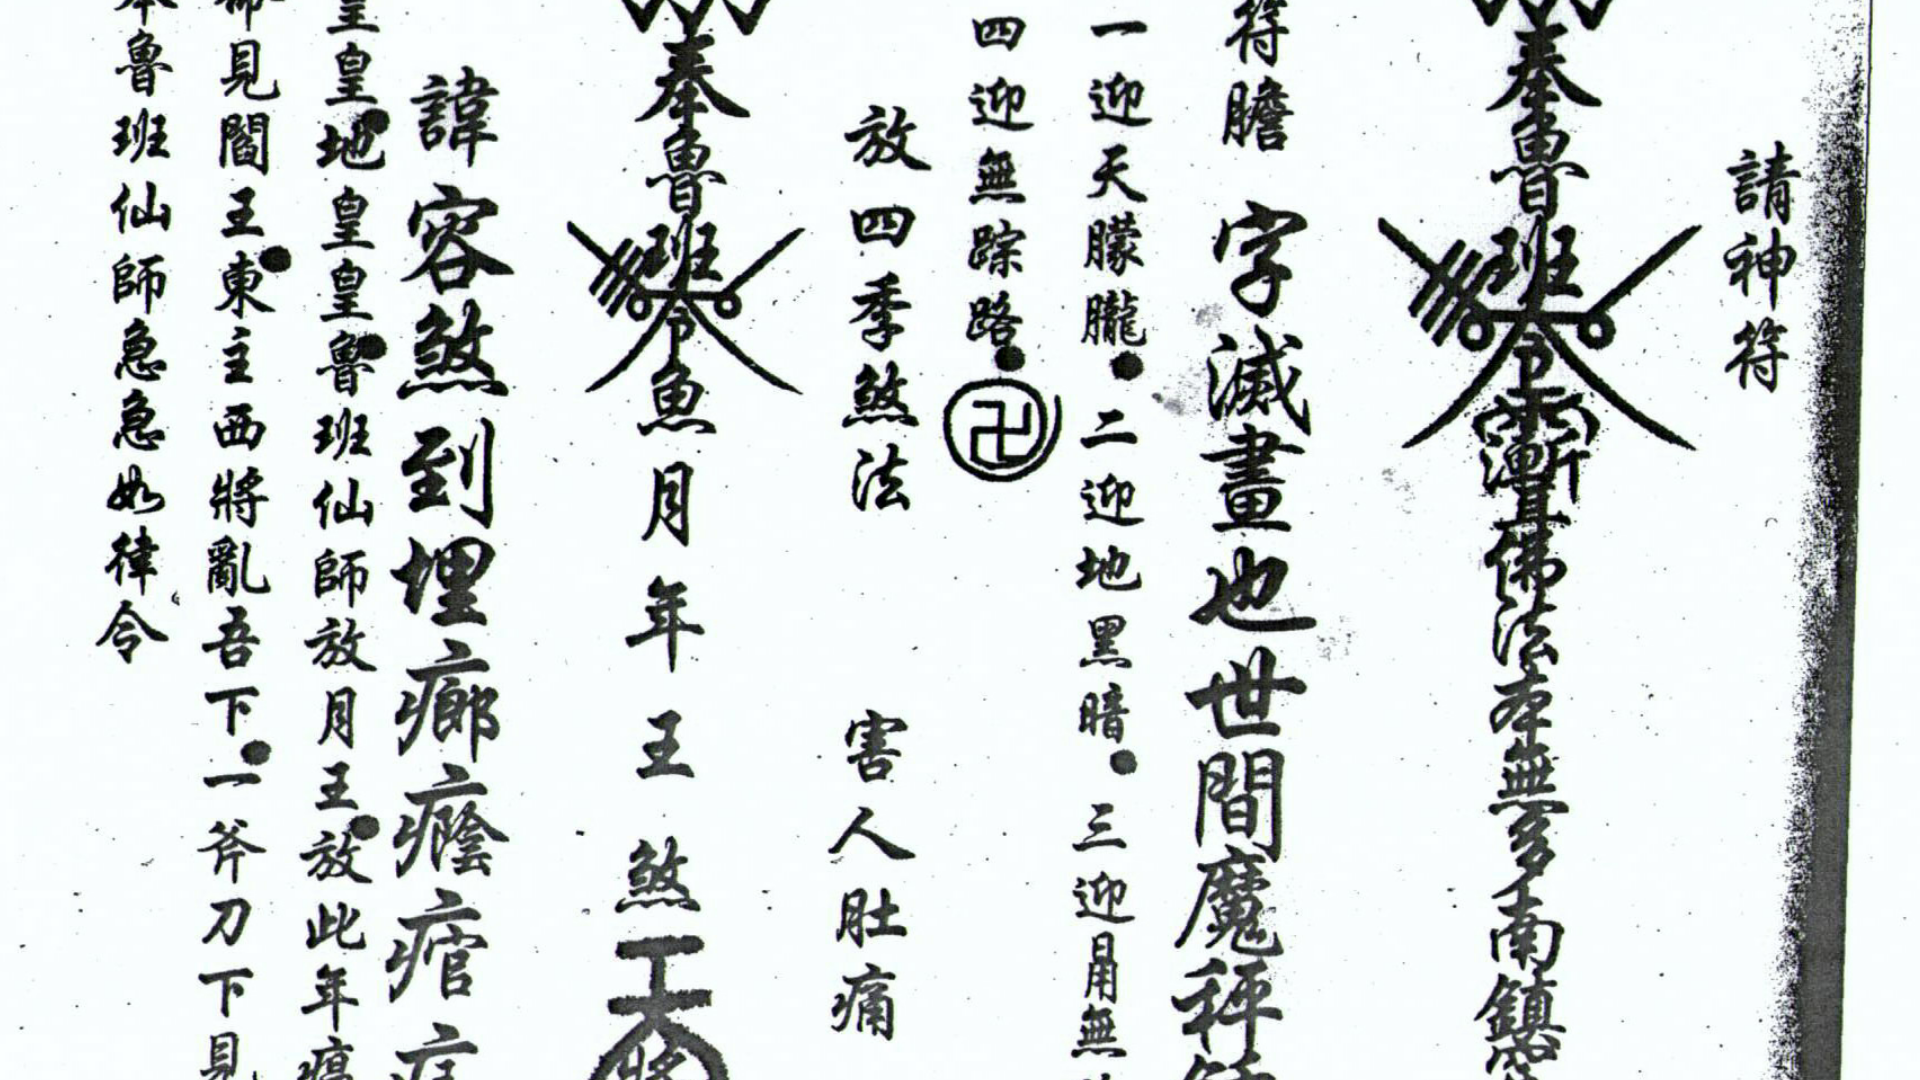 請神符
奉魯班令佛法本無多南鎮
符膽 字滅畫也世間魔秤
一迎天朦朧 二迎地黑暗 三迎
四迎無踪路 卍
放四季煞法 害人肚痛
奉魯班令魚月年王煞
諱容煞到埋
皇皇地皇皇魯班仙師放月王放此年
見閻王東主西將亂吾下一斧刀下見
魯班仙師急急如律令